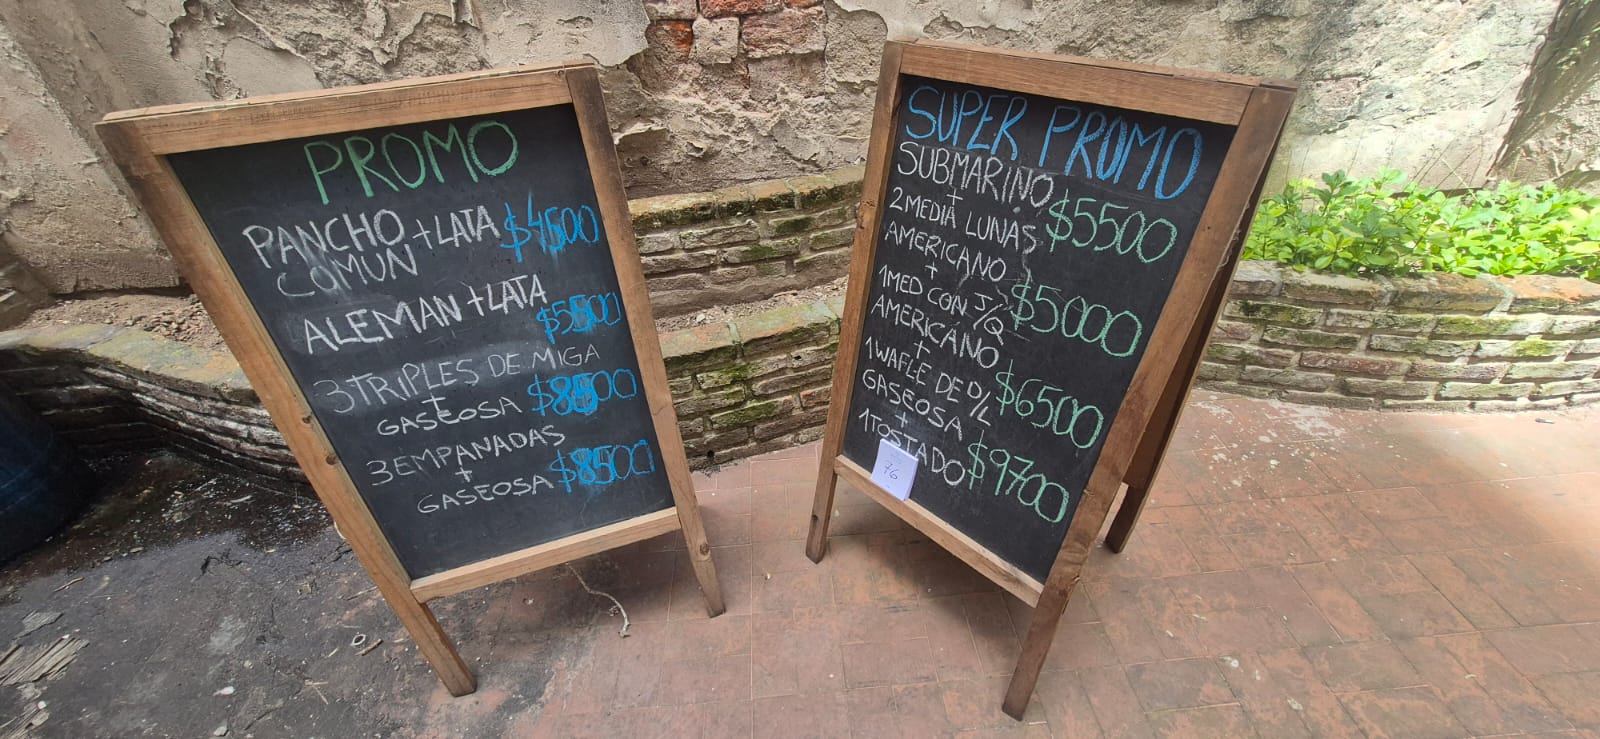 PROMO
PANCHO + LATA $4500
COMUN
ALEMAN + LATA
$5500
3 TRIPLES DE MIGA
+
GASEOSA $8500
3 EMPANADAS
+
GASEOSA $8500
SUPER PROMO
SUBMARINO
+
2 MEDIA LUNAS $5500
AMERICANO
+
1 MED CON J/Q $5000
AMERICANO
+
1 WAFLE DE D/L $6500
GASEOSA
+
1 TOSTADO $9700
76